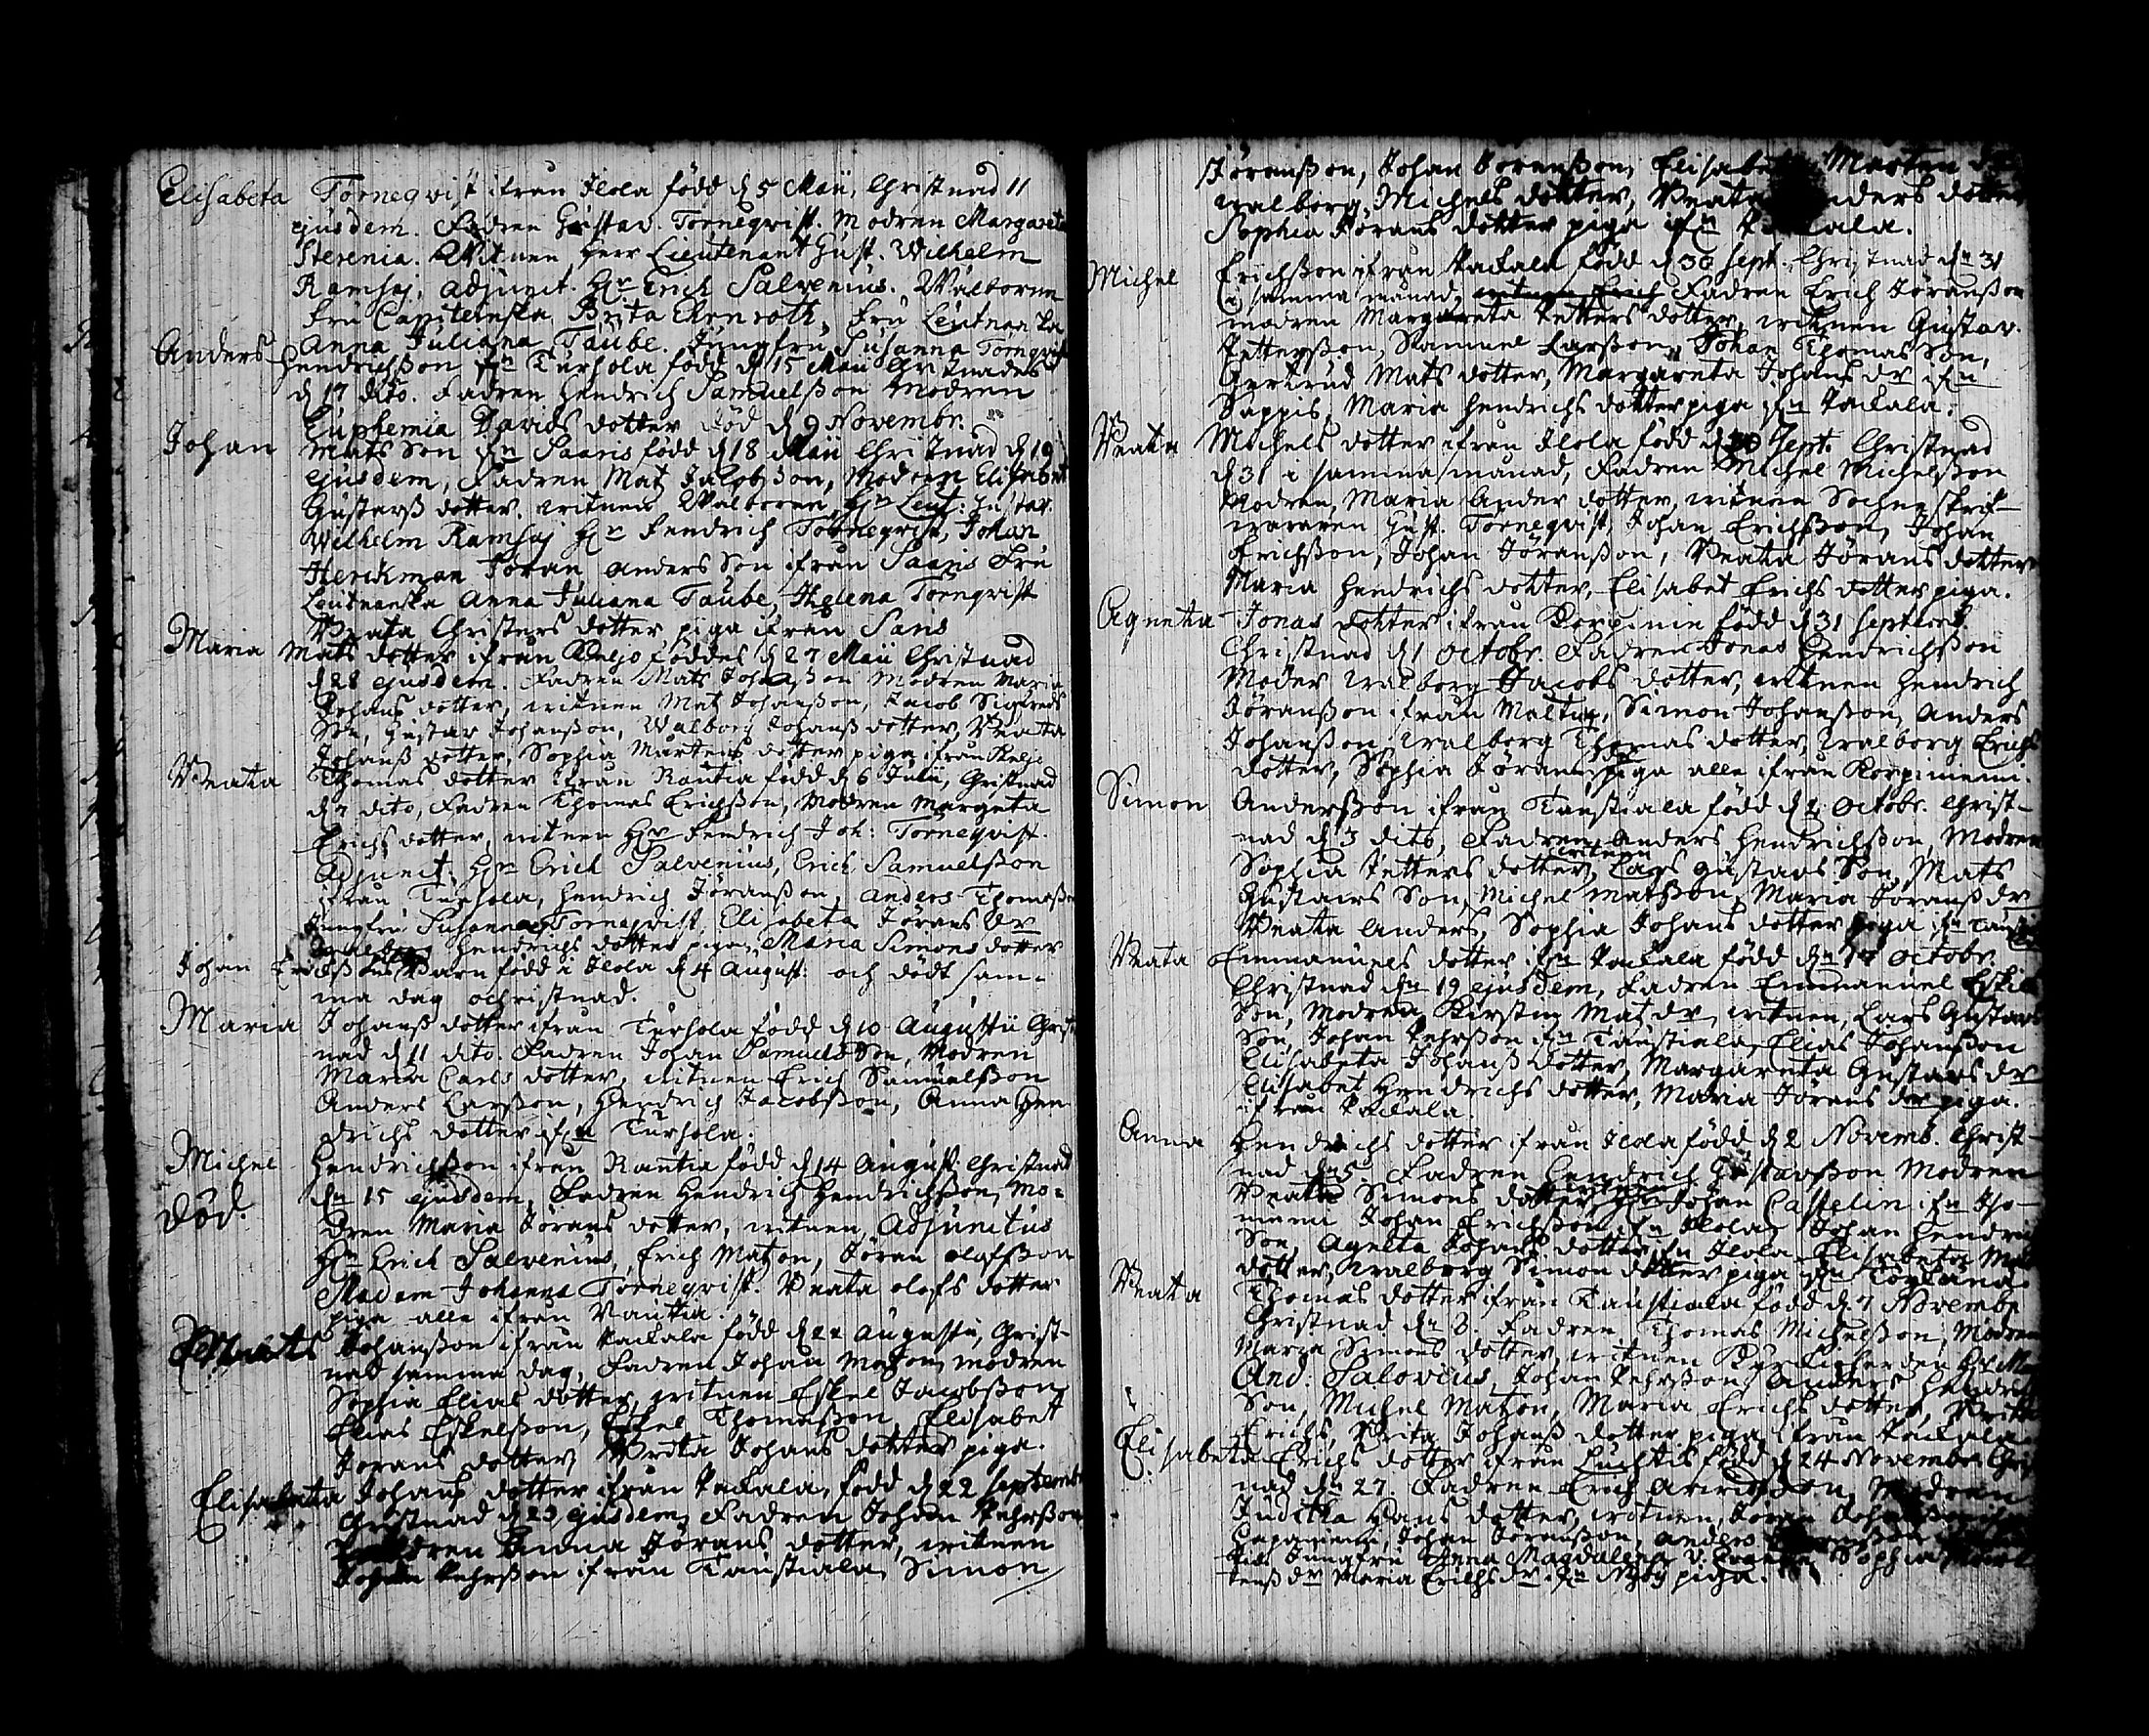 Elisabeta Törneqvist ifrån Ilola född d 5 Maii, Christnad 11
ejusdem. Fadren Gustav Törneqvist. Modren Margareta
Sterenia. Witnen Herr Lieutenant Gust. Wilhelm
Ramsaj, adjunct. Hr Erich Salvenius. Wälborne
Fru Capiteinska Brita Ehrnroth, Fru Leutnanska
Anna Juliana Taube. Jungfru Susanna Törnqvist
Anders Hendrichsson ifn Turhola född d 15 Maii Christnades
d 17 dito. Fadren Hendrich Samuelsson Modren
Euphemia Davids dotter död d 9 Novembr.
Johan Mats Son ifn Saaris född d 18 Maii Christnad d 19
ejusdem, Fadren Mat Jacobsson, Modren Elisabet
Gustafs dotter. witnen Wälboren Hr Leut: Gustav.
Wilhelm Ramsaj Hr Fendrich Törneqvist, Johan
Herckman Jöran Anders Son ifrån Saaris Fru
Leutnanska Anna Juliana Taube, Helena Törnqvist
Beata Christers dotter piga ifrån Saris
Maria Mats dotter ifrån föddes d 27 Maii Christnad
d 28 ejusdem. Fadren Mats Johansson Modren Maria
Johans dotter, witnen Mat Johansson, Jacob Sigfreds
Son, Gustav Johansson, Walborg Johans dotter, Beata
Johans dotter, Sophia Mårtens dotter piga ifrån
Beata Thomas dotter ifrån Rantia född d 6 Julii, Christnad
d 7 dito, Fadren Thomas Erichsson, Modren Margeta
Erichs dotter, witnen Hr Fendrich Joh: Törneqvist.
Adjunct. Hr Erich Salvenius, Erich Samuelsson
ifrån Turhola, Hendrich Jöransson, Anders Thomasson
Jungfru Susanna Törneqvist, Elisabeta Jörans dr
Walborg Hendrichs dotter piga, Maria Simons dotter
Johan Erichssons Barn född i Ilola d 4 August: och dödt sam-
ma dag ochristnad.
Maria Johans dotter ifrån Turhola född d 10 Augusti Christ
nad d 11 dito. Fadren Johan Samuels Son, Modren
Maria Carls dotter, witnen Erich Samuelsson
Anders Larsson, Hendrich Jacobsson, Anna Hen
drichs dotter ifn Turhola.
Michel Hendrichsson ifrån Rantia född d 14 August Christnad
död. d 15 ejusdem, Fadren Hendrich Hendrichsson, Mo-
dren Maria Jörans dotter, witnen Adjunctus
Hr Erich Salvenius, Erich Matzon, Jöran Olofsson
Madam Johanna Törneqvist. Beata Olofs dotter
piga alle ifrån Rantia.
Mats Johansson ifrån Packala född d 22 Augusti, Christ-
nad samma dag, Fadren Johan Matzon, modren
Sophia Elias dotter, witnen Eskel Jacobsson
Elias Eskelsson, Eskel Thomasson, Elisabet
Jörans dotter, Brita Johans dotter piga.
Elisabeta Johans dotter ifrån Packala, född d 22 Septembr
Christnad d 23 ejusdem, Fadren Johan Pehrsson
Modren Anna Jörans dotter, witnen
Johan Pehrsson ifrån Tanstiala, Simon
Jöransson, Johan Jöransson, Elisabet Mårten
Walborg Michels dotter, Beata Anders dotter
Sophia Jörans dotter piga ifn Packala.
Michel Erichsson ifrån Packala född d 30 Sept. Christnad d 31
i samma månad, Fadren Erich Jöransson
modren Margareta Petters dotter, witnen Gustav.
Pettersson, Samuel Larsson, Johan Thomas Son,
Gertrud Mats dotter, Margareta Johans dr ifn
Sappis, Maria Hendrichs dotter piga ifn Packala.
Beata Michels dotter ifrån Ilola född d 30 Sept. Christnad
d 31 i samma månad, Fadren Michel Michelsson
Modren, Maria Ander dotter, witnen Sochneskrif-
waren Gust. Törneqvist, Johan Erichsson, Johan
Erichsson, Johan Jöransson, Beata Jörans dotter
Maria Hendrichs dotter, Elisabet Erichs dotter piga.
Agneta Jonas dotter ifrån Korpinin född d 31 Septemb.
Christnad d 1 Octobr. Fadren Jonas Hendrichsson
Moder Walborg Jacobs dotter, witnen Hendrich
Jöransson ifrån Simon Johansson, Anders
Johansson, Walborg Thomas dotter, Walborg Erichs
dotter, Sophia Jörans dotter piga alle ifrån Korpiniemi.
Simon Andersson ifrån Tanstiala född d 2 Octobr. Christ-
nad d 3 dito, Fadren Anders Hendrichsson, Modren
Sophia Petters dotter, witnen Lars Gustavs Son, Mats
Gustavs Son, Michel Matsson, Maria Jörans dr
Beata Anders, Sophia Johans dotter piga ifn
Beata Emmanuels dotter ifn Packala född d 17 Octobr.
Christnad d 19 ejusdem, Fadren Emmanuel Eskils
Son, Modren Kirstin Mat dr, witnen, Lars Gustavs
Son, Johan Pehrsson ifn Tanstiala, Elias Johansson
Elisabeta Johans dotter, Margareta Gustavs dr
Elisabet Hendrichs dotter, Maria Jörans dr piga.
ifrån Packala.
Anna Hendrichs dotter ifrån Ilola född d 2 Novemb. Christ-
nad d 5. Fadren Hendrich Gustavsson Modren
Beata Simons dotter, witnen Johan Casselin ifn
Johan Erichsson ifn Ilola, Johan Hendrich
Son, Agneta Johans dotter ifn Ilola Elisabeta
dotter, Walborg Simon dotter piga ifn
Beata Thomas dotter ifrån Tanstiala född d 7 Novembr
Christnad d 8. Fadren Thomas Michelsson, Modren
Maria Simons dotter, witnen Kyrkioherden Hr
And: Salovius, Johan Pehrsson, Anders Hendrich
Son, Michel Matzon, Maria Erichs dotter, Brita
Erichs, Brita Johans dotter piga ifrån Packala
Elisabeta Erichs dotter ifrån Luchtis född d 24 Novembr Christ
nad d 27. Fadren Erich Modren
Juditha Hans dotter, witnen, Jöran
Johan Jöransson, Anders
Jungfru Anna Magdalena Sophia
tens dr Maria Erichs dr ifn piga.